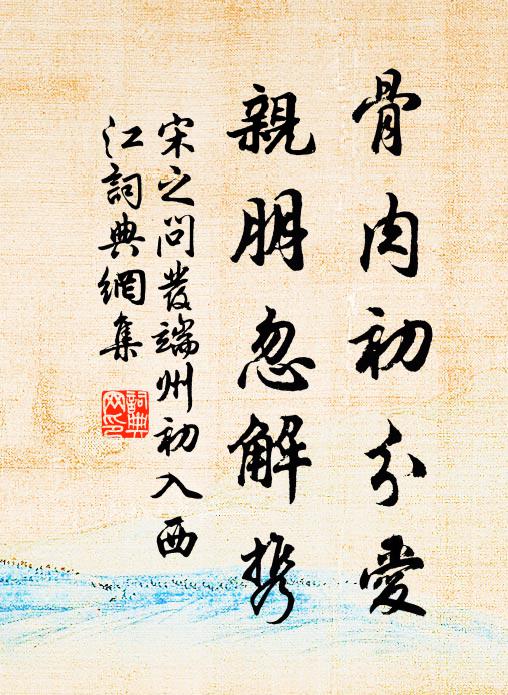 骨肉初分愛
親朋忽解携
宋之问發端州初入西
江詞典網集
詞典
网印